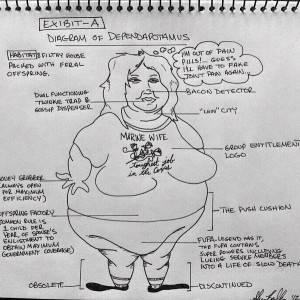 EXIBIT-A
DIAGRAM OF DEPENDAPOTAMUS
HABITAT: FILTHY HOUSE
PACKED WITH FERAL
OFFSPRING.
I'M OUT OF PAIN
PILLS!... GUESS
I'LL HAVE TO FAKE
JOINT PAIN AGAIN...
BACON DETECTOR
DUAL FUNCTIONING
TWINKIE TRAP &
GOSSIP DISPENSER
"CHIN" CITY
MARINE WIFE
Toughest job
in the Corps
GROUP ENTITLEMENT
LOGO
MONEY GRABBER
(ALWAYS OPEN
FOR MAXIMUM
EFFICIENCY)
OFFSPRING FACTORY
COMMON RULE IS
1 CHILD PER
YEAR OF SPOUSE'S
ENLISTMENT TO
OBTAIN MAXIMUM
GOVERNMENT COVERAGE)
THE PUSH CUSHION
FUPA. LEGEND HAS IT,
THE FUPA CONTAINS
SUPER POWERS INCLUDING
LURING SERVICE MEMBERS
INTO A LIFE OF SLOW DEATH
OBSOLETE
DISCONTINUED